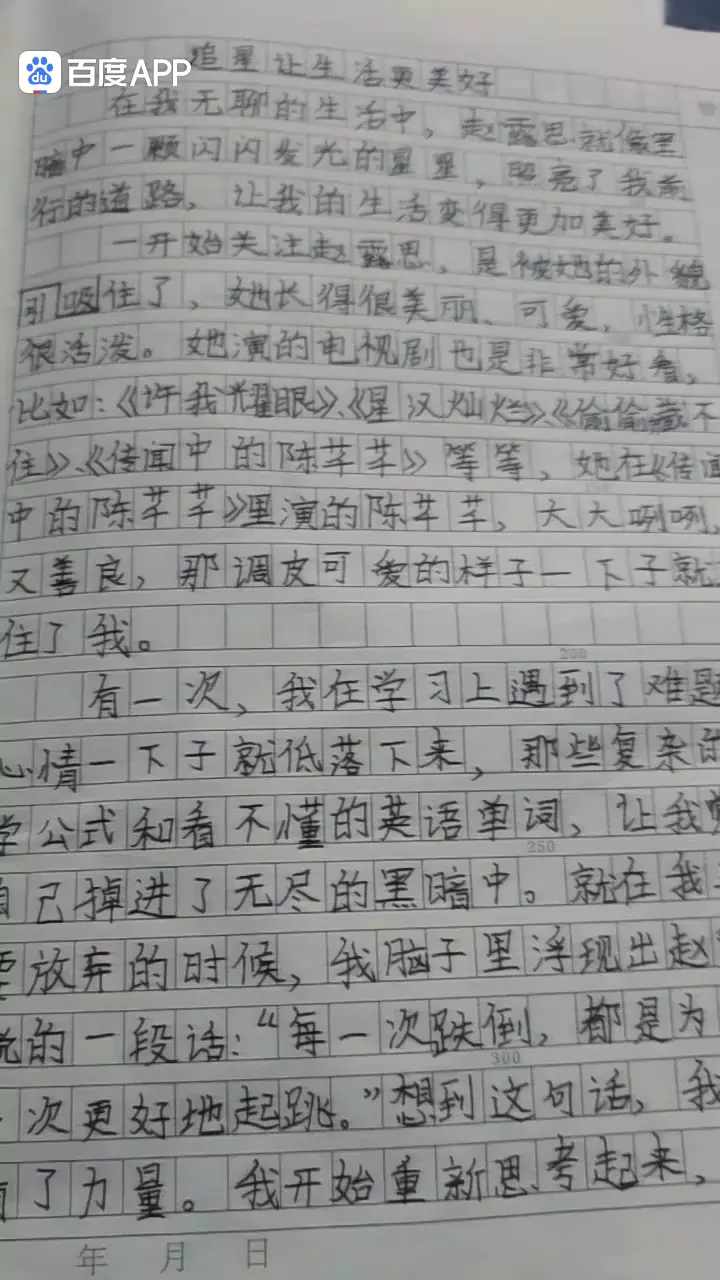 百度APP
追星让生活更美好
在我无聊的生活中，赵露思就像黑
暗中一颗闪闪发光的星星，照亮了我前
行的道路，让我的生活变得更加美好。
一开始关注赵露思，是被她的外貌
引吸住了，她长得很美丽、可爱，性格
很活泼。她演的电视剧也是非常好看，
比如：《许我耀眼》、《星汉灿烂》、《偷偷藏不
住》、《传闻中的陈芊芊》等等，她在《传闻
中的陈芊芊》里演的陈芊芊，大大咧咧，
又善良，那调皮可爱的样子一下子就
住了我。
200
有一次，我在学习上遇到了难题
心情一下子就低落下来，那些复杂的
学公式和看不懂的英语单词，让我
250
自己掉进了无尽的黑暗中。就在我
要放弃的时候，我脑子里浮现出赵
说的一段话：“每一次跌倒，都是为
300
次更好地起跳。”想到这句话，我
有了力量。我开始重新思考起来，
年 月 日